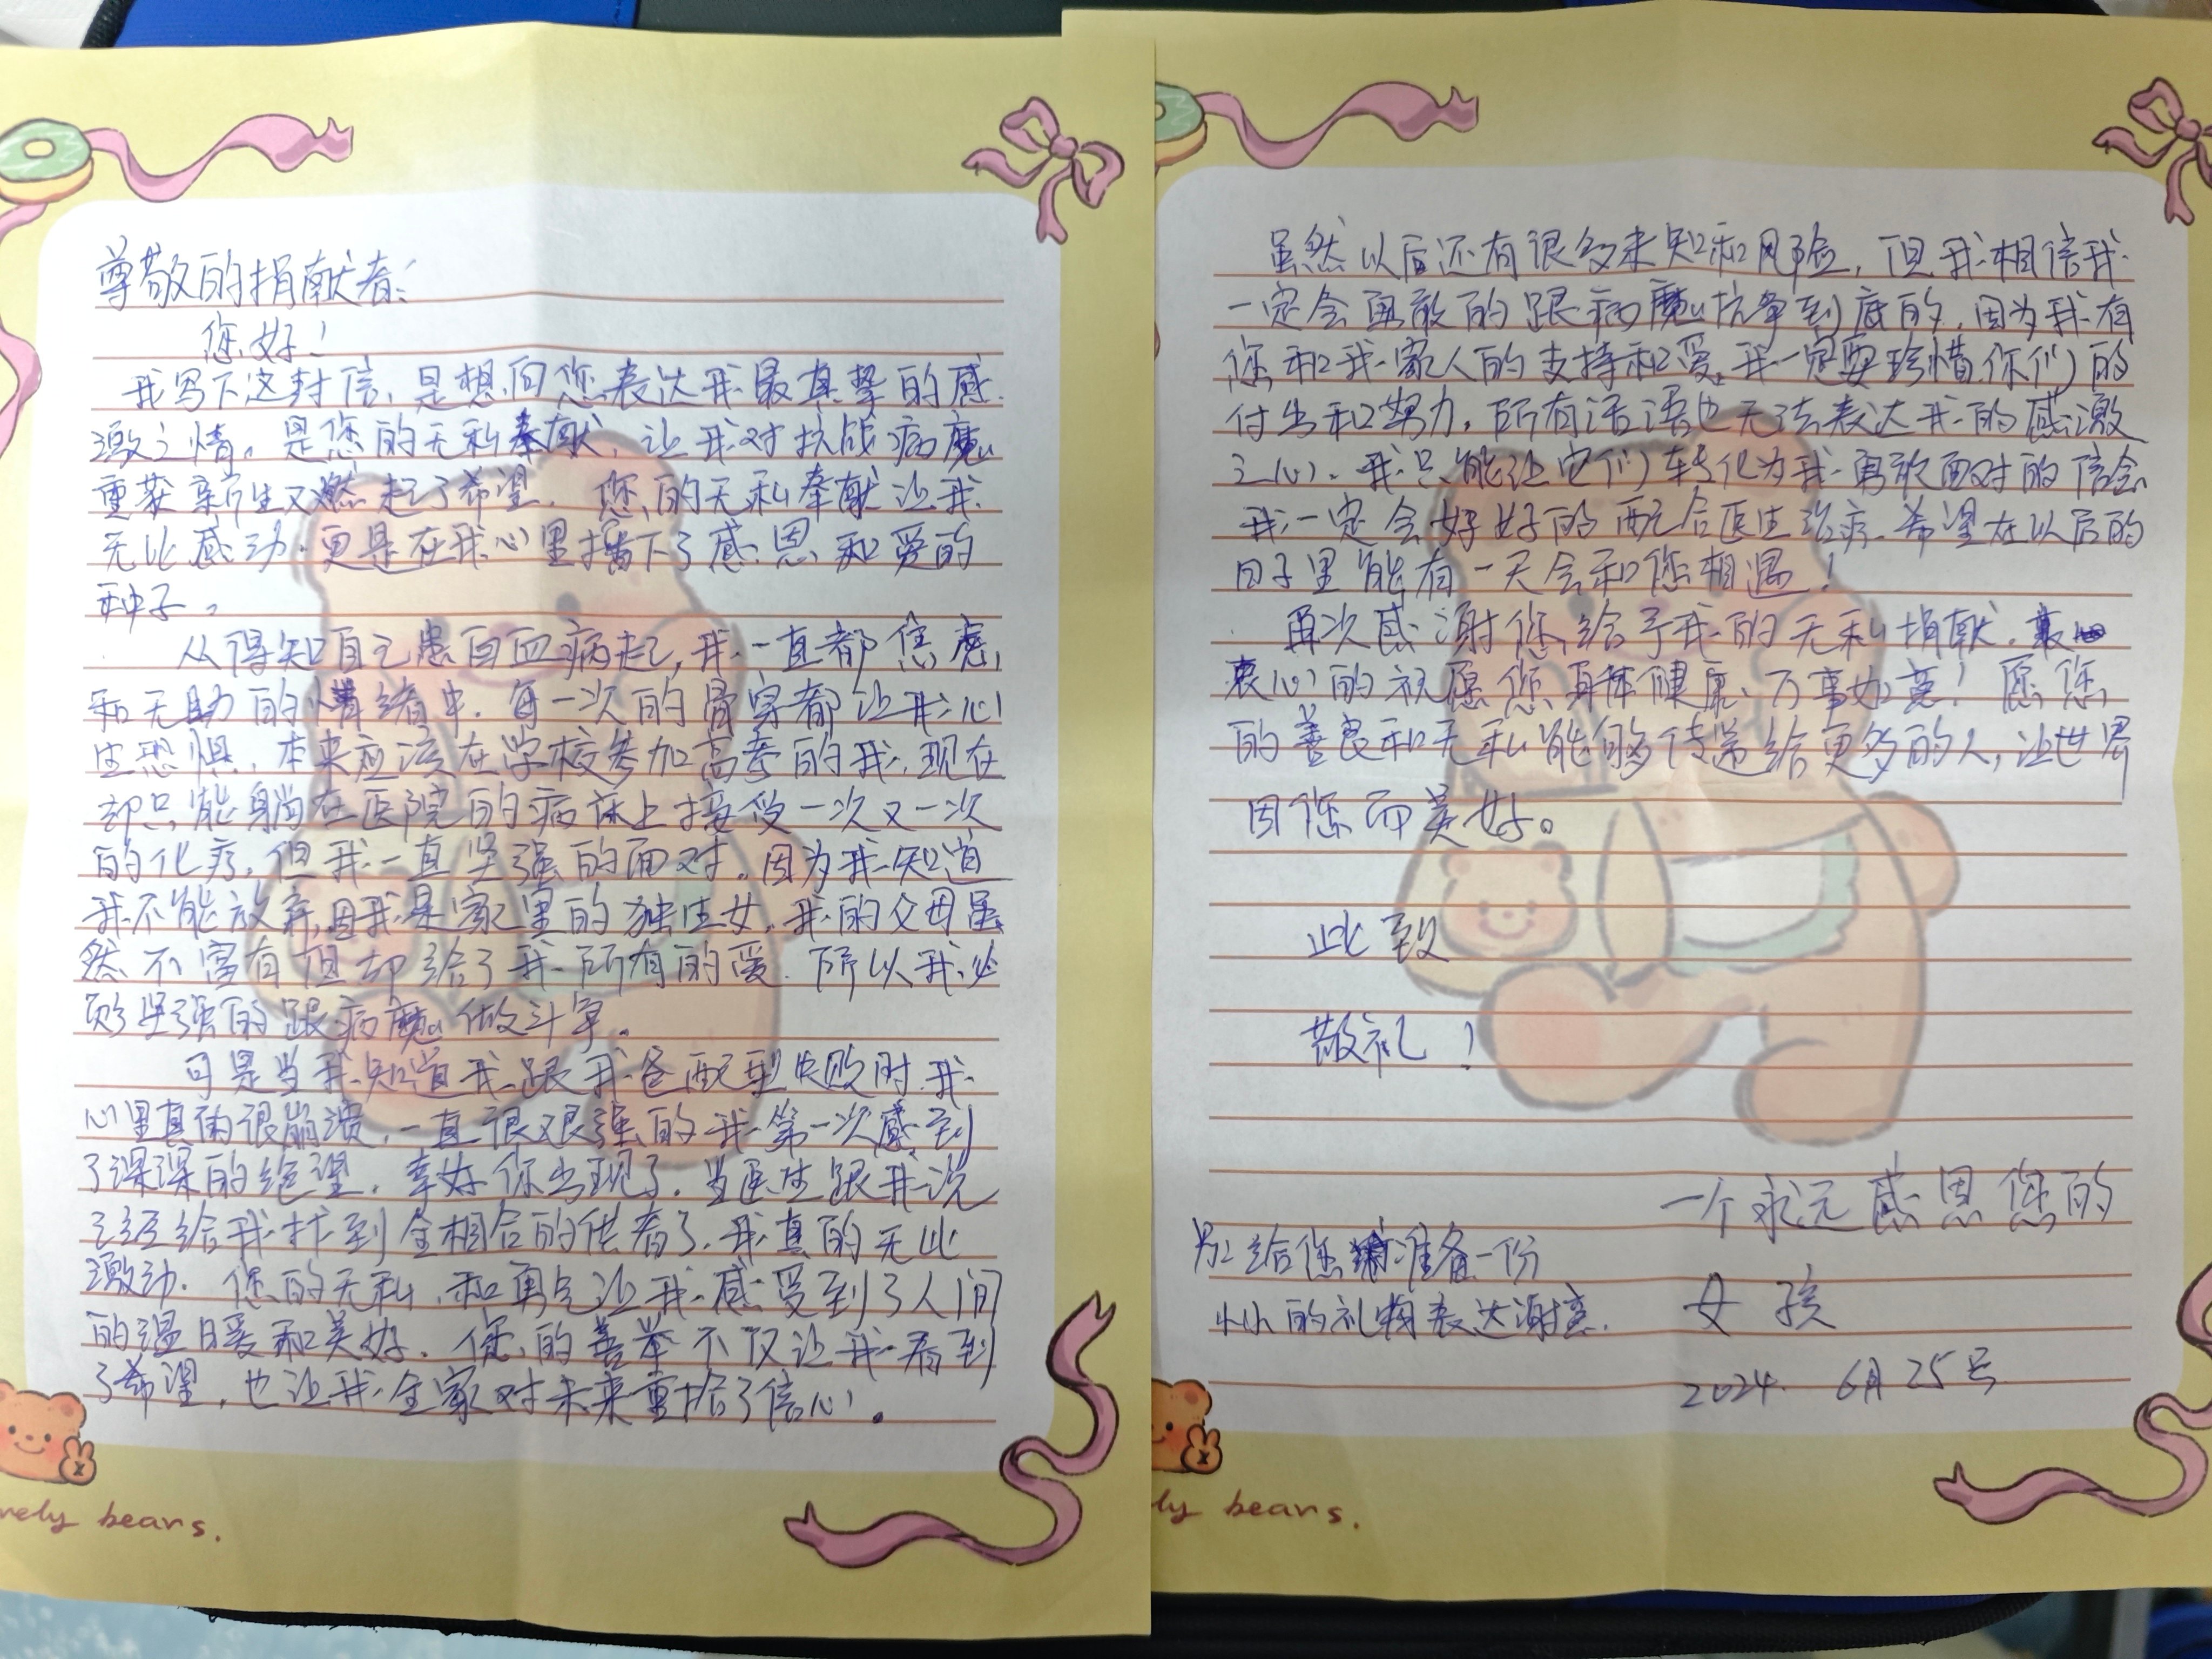 尊敬的捐献者:
您好!
我写下这封信,是想向您表达我最真挚的感
激之情。是您的无私奉献,让我对抗战病魔
重获新生又燃起了希望。您的无私奉献让我
无比感动,更是在我心里播下了感恩和爱的
种子。
从得知自己患白血病起,我一直都焦虑
和无助的情绪中。每一次的骨穿都让我心
生恐惧,本来应该在学校参加高考的我,现在
却只能躺在医院的病床上接受一次又一次
的化疗,但我一直坚强的面对。因为我知道
我不能放弃,因我是家里的独生女,我的父母虽
然不富有但却给了我所有的爱。所以我必
须坚强的跟病魔做斗争。
可是当我知道我跟我爸配型失败时,我
心里真的很崩溃,一直很坚强的我第一次感到
了深深的绝望,幸好你出现了。当医生跟我说
已经给我找到全相合的供者了,我真的无比
激动。您的无私,和勇气让我感受到了人间
的温暖和美好。您的善举不仅让我看到
了希望,也让我全家对未来重拾了信心。
vely beans.
虽然以后还有很多未知和风险,但我相信我
一定会勇敢的跟病魔抗争到底的,因为我有
您和我家人的支持和爱,我一定要珍惜你们的
付出和努力,所有话语也无法表达我的感激
之心,我只能让它们转化为我勇敢面对的信念
我一定会好好的配合医生治疗,希望在以后的
日子里能有一天会和您相遇!
再次感谢您给予我的无私捐献,
衷心的祝愿您身体健康、万事如意!愿您
的善良和无私能够传递给更多的人,让世界
因您而美好。
此致
敬礼!
一个永远感恩您的
女孩
2024. 6月25号
另给您准备一份
小小的礼物表达谢意.
ly beans.